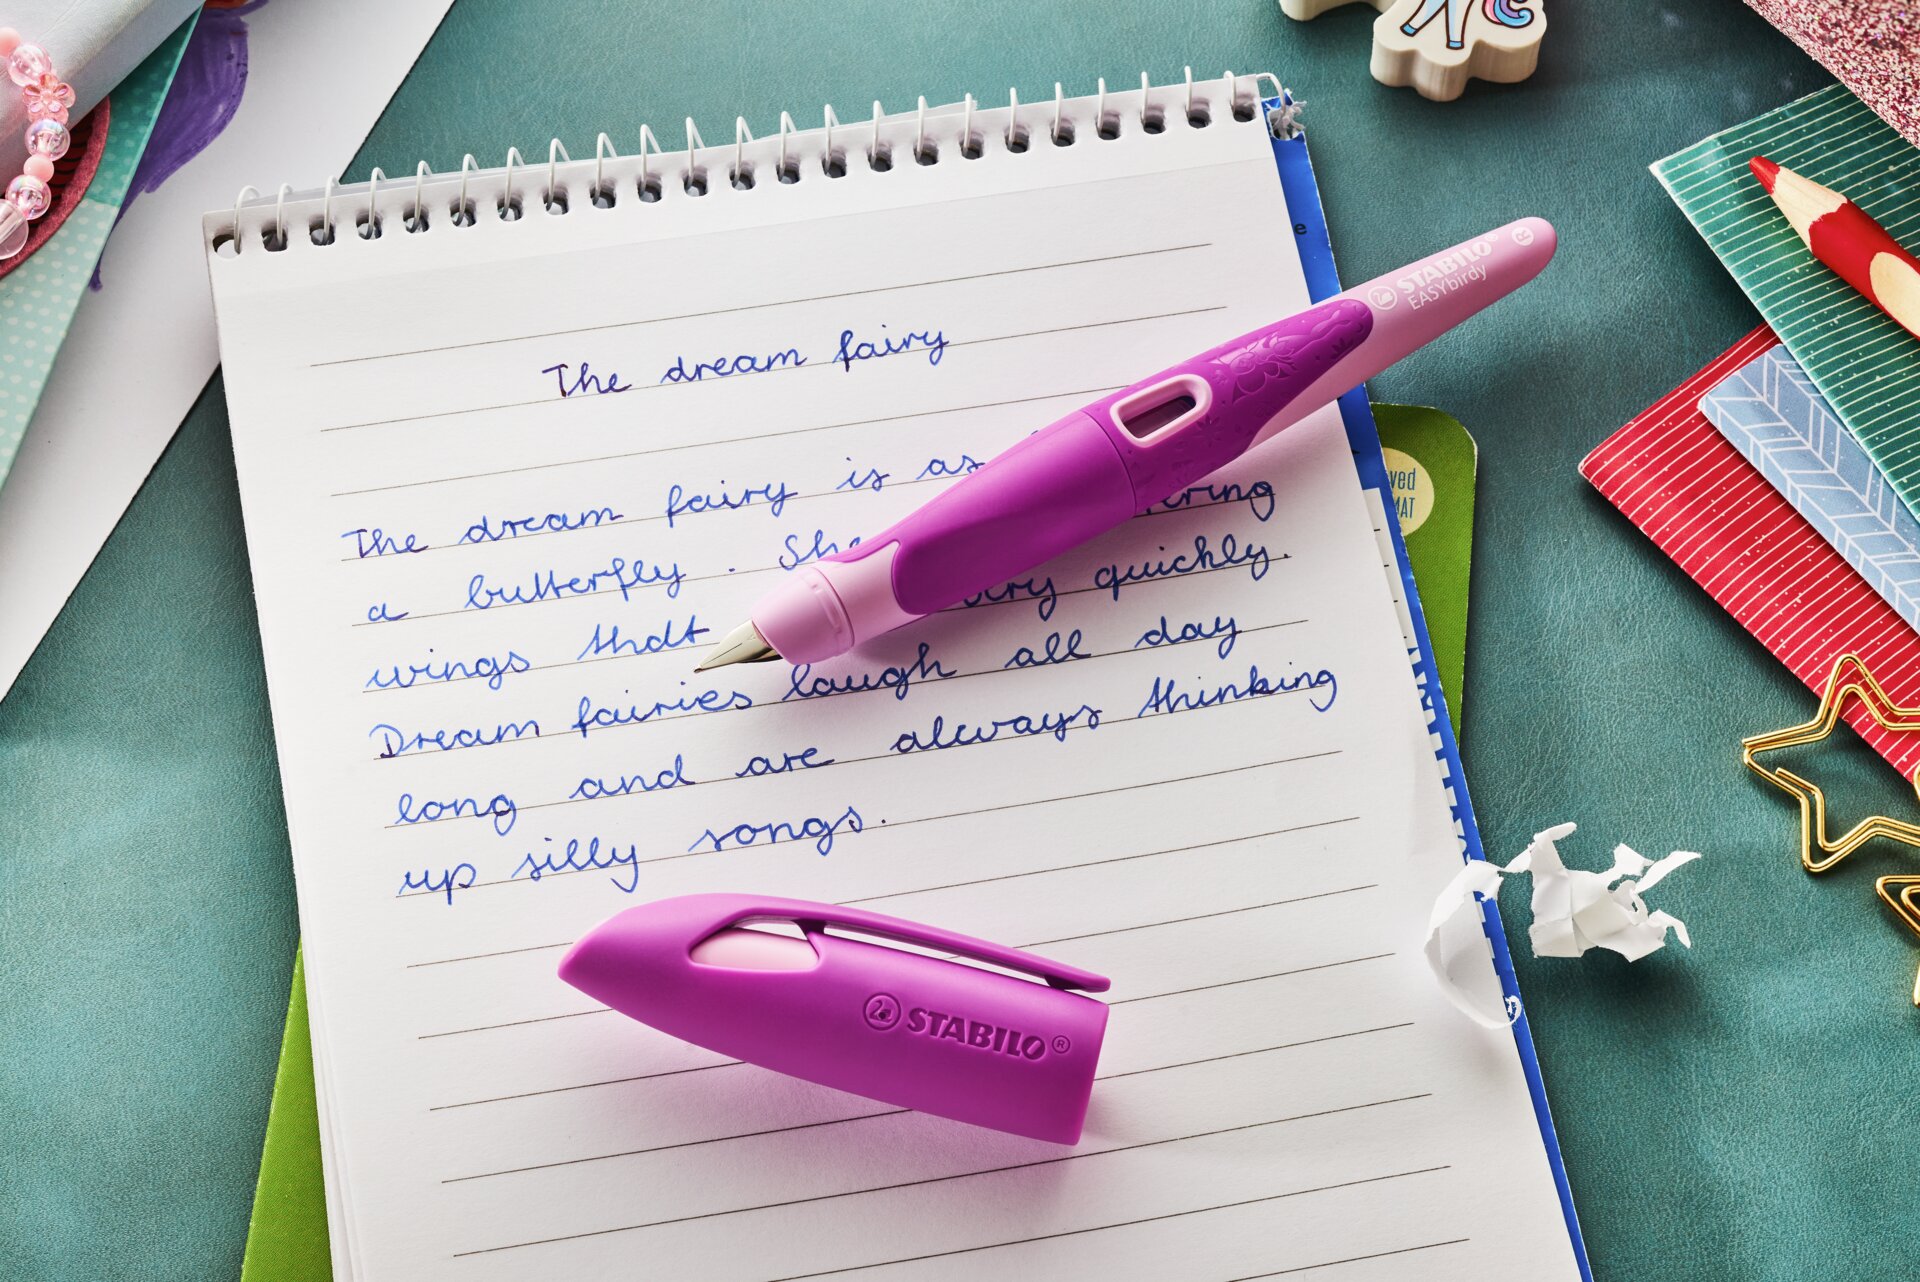 The dream fairy
The dream fairy is as
a butterfly. She
wings that very quickly.
Dream fairies laugh all day
long and are always thinking
up silly songs.
STABILO®
EASYbirdy
R
STABILO®